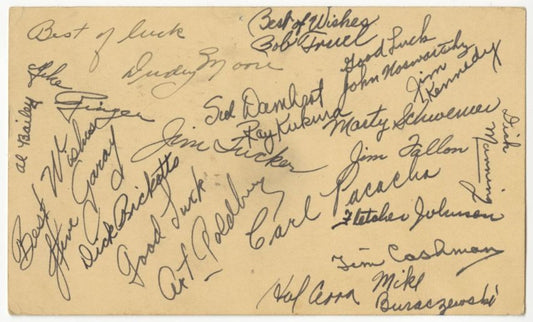 Best of luck
Dudey Moore
Best of Wishes
Bob Truel
Good Luck
John Nosworthy
Jim
Kennedy
Al Bailey
Luke
Ringer
Sid Damhgot
Ray Kukura
Marty Schwemer
Dick
Manning
Jim Tucker
Jim Fallon
Best Wishes
Jim Garay
Dick Ricketts
Good Luck
Art Poldbuy
Carl Pacacha
Fletcher Johnson
Jim Cashman
Hal Cerra
Mike
Buraczewski